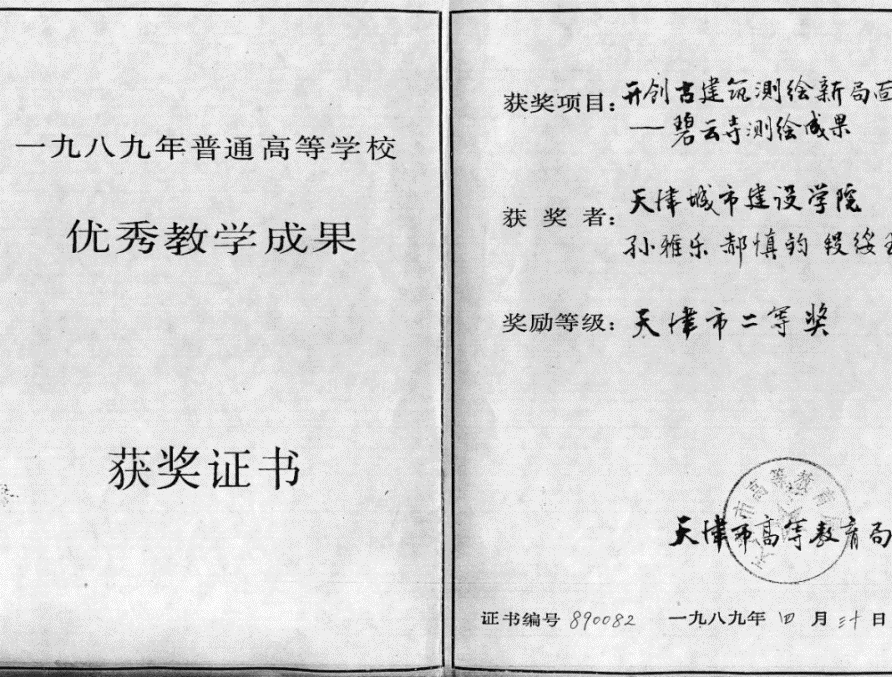 一九八九年普通高等学校
优秀教学成果
获奖证书
获奖项目：开创古建筑测绘新局面
—碧云寺测绘成果
获奖者：天津城市建设学院
孙雅乐 郝慎钧 段绥
奖励等级：天津市二等奖
天津市高等教育局
证书编号 890082 一九八九年 四 月 三十 日